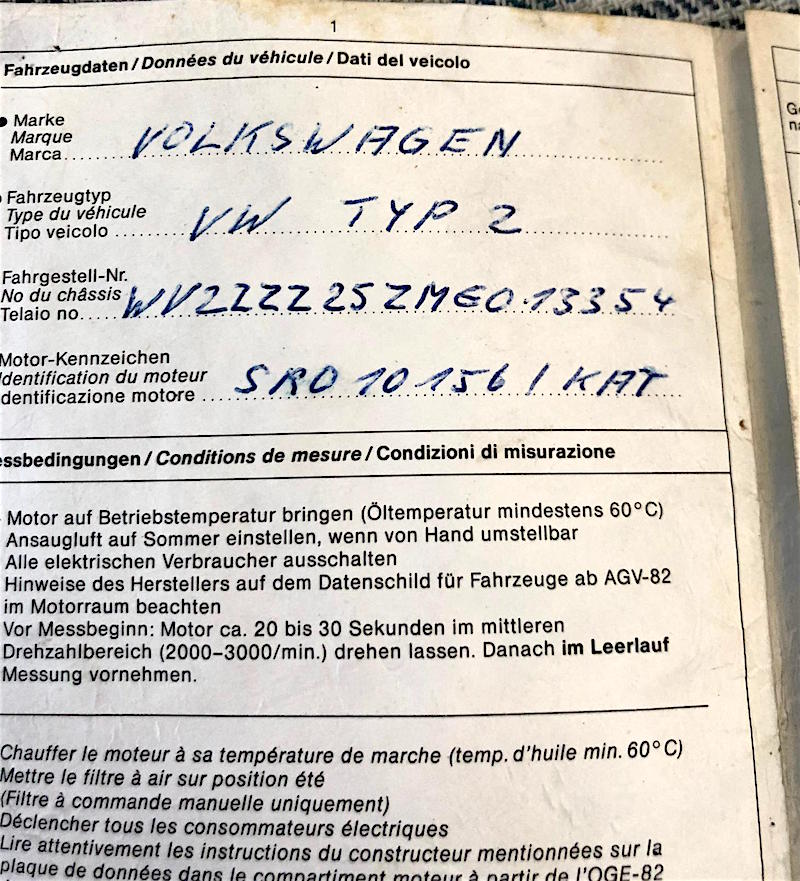 1
Fahrzeugdaten / Données du véhicule / Dati del veicolo
Marke
Marque
Marca..... VOLKSWAGEN
Fahrzeugtyp
Type du véhicule
Tipo veicolo ..... VW TYP 2
Fahrgestell-Nr.
No du châssis
Telaio no..... WV2ZZZ25ZMEO13354
Motor-Kennzeichen
Identification du moteur
dentificazione motore ..... SRO 10 156 / KAT
essbedingungen / Conditions de mesure / Condizioni di misurazione
Motor auf Betriebstemperatur bringen (Öltemperatur mindestens 60°C)
Ansaugluft auf Sommer einstellen, wenn von Hand umstellbar
Alle elektrischen Verbraucher ausschalten
Hinweise des Herstellers auf dem Datenschild für Fahrzeuge ab AGV-82
im Motorraum beachten
Vor Messbeginn: Motor ca. 20 bis 30 Sekunden im mittleren
Drehzahlbereich (2000–3000/min.) drehen lassen. Danach im Leerlauf
Messung vornehmen.
Chauffer le moteur à sa température de marche (temp. d'huile min. 60°C)
Mettre le filtre à air sur position été
(Filtre à commande manuelle uniquement)
Déclencher tous les consommateurs électriques
Lire attentivement les instructions du constructeur mentionnées sur la
plaque de données dans le compartiment moteur à partir de l'OGE-82